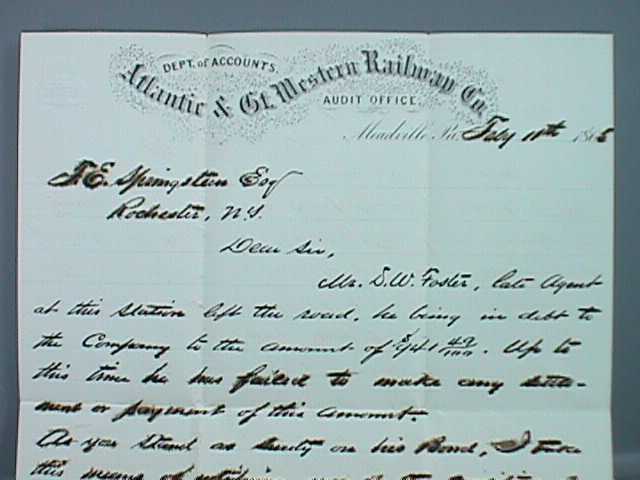 DEPT. of ACCOUNTS.
Atlantic & Gt. Western Railway Co.
AUDIT OFFICE.
Meadville Pa. Feby 11th 186
F. E. Springstein Esq
Rochester, N.Y.
Dear Sir,
Mr. S. W. Foster, late Agent
at this station left the road, he being in debt to
the Company to the amount of $941 49/100. Up to
this time he has failed to make any settle-
ment or payment of this amount.
As you stand as surety on his Bond, I take
this means of notifying you of the